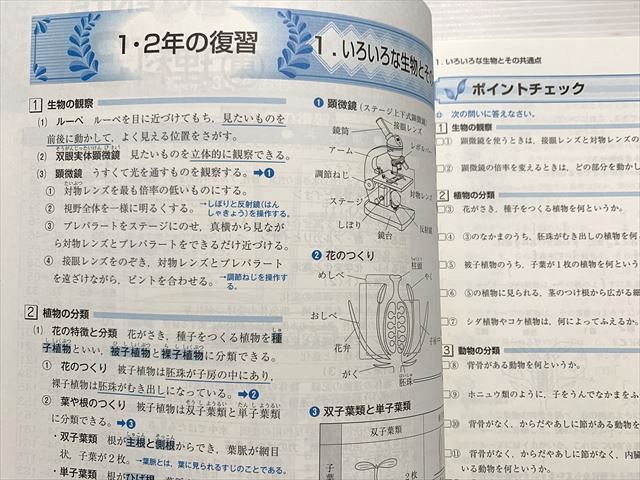 1・2年の復習
1．いろいろな生物とその
1 生物の観察
(1) ルーペ ルーペを目に近づけてもち，見たいものを
前後に動かして，よく見える位置をさがす。
(2) 双眼実体顕微鏡 見たいものを立体的に観察できる。
(3) 顕微鏡 うすくて光を通すものを観察する。➡❶
① 対物レンズを最も倍率の低いものにする。
② 視野全体を一様に明るくする。→しぼりと反射鏡(はん
しゃきょう)を操作する。
③ プレパラートをステージにのせ，真横から見なが
ら対物レンズとプレパラートをできるだけ近づける。
④ 接眼レンズをのぞき，対物レンズとプレパラート
を遠ざけながら，ピントを合わせる。→調節ねじを操作す
る。
2 植物の分類
(1) 花の特徴と分類 花がさき，種子をつくる植物を種
子植物といい，被子植物と裸子植物に分類できる。
① 花のつくり 被子植物は胚珠が子房の中にあり，
裸子植物は胚珠がむき出しになっている。➡❷
② 葉や根のつくり 被子植物は双子葉類と単子葉類
に分類できる。➡❸
・双子葉類 根が主根と側根からでき，葉脈が網目
状，子葉が2枚。→葉脈とは，葉に見られるすじのことである。
・単子葉類 根がひげ根，葉脈
❶ 顕微鏡(ステージ上下式顕微鏡)
鏡筒
接眼レンズ
アーム
レボルバー
調節ねじ
対物レンズ
ステージ
しぼり
反射鏡
鏡台
❷ 花のつくり
めしべ
柱頭
やく
おしべ
花弁
がく
胚珠
❸ 双子葉類と単子葉類
双子葉類
子
葉
2枚
1．いろいろな生物とその共通点
ポイントチェック
次の問いに答えなさい。
1 生物の観察
① 顕微鏡を使うときは，接眼レンズと対物レンズの
② 顕微鏡の倍率を変えるときは，どの部分を動かし
2 植物の分類
③ 花がさき，種子をつくる植物を何というか。
④ ③のなかまのうち，胚珠がむき出しの植物を何
⑤ 被子植物のうち，子葉が1枚の植物を何という
⑥ ⑤の植物に見られる，茎のつけ根から広がる細
⑦ シダ植物やコケ植物は，何によってふえるか。
3 動物の分類
⑧ 背骨がある動物を何というか。
⑨ ホニュウ類のように，子をうんでなかまをふ
⑩ 背骨がなく，からだやあしに節がある動物を
⑪ 背骨がなく，からだやあしに節がなく，内臓
いる動物を何というか。